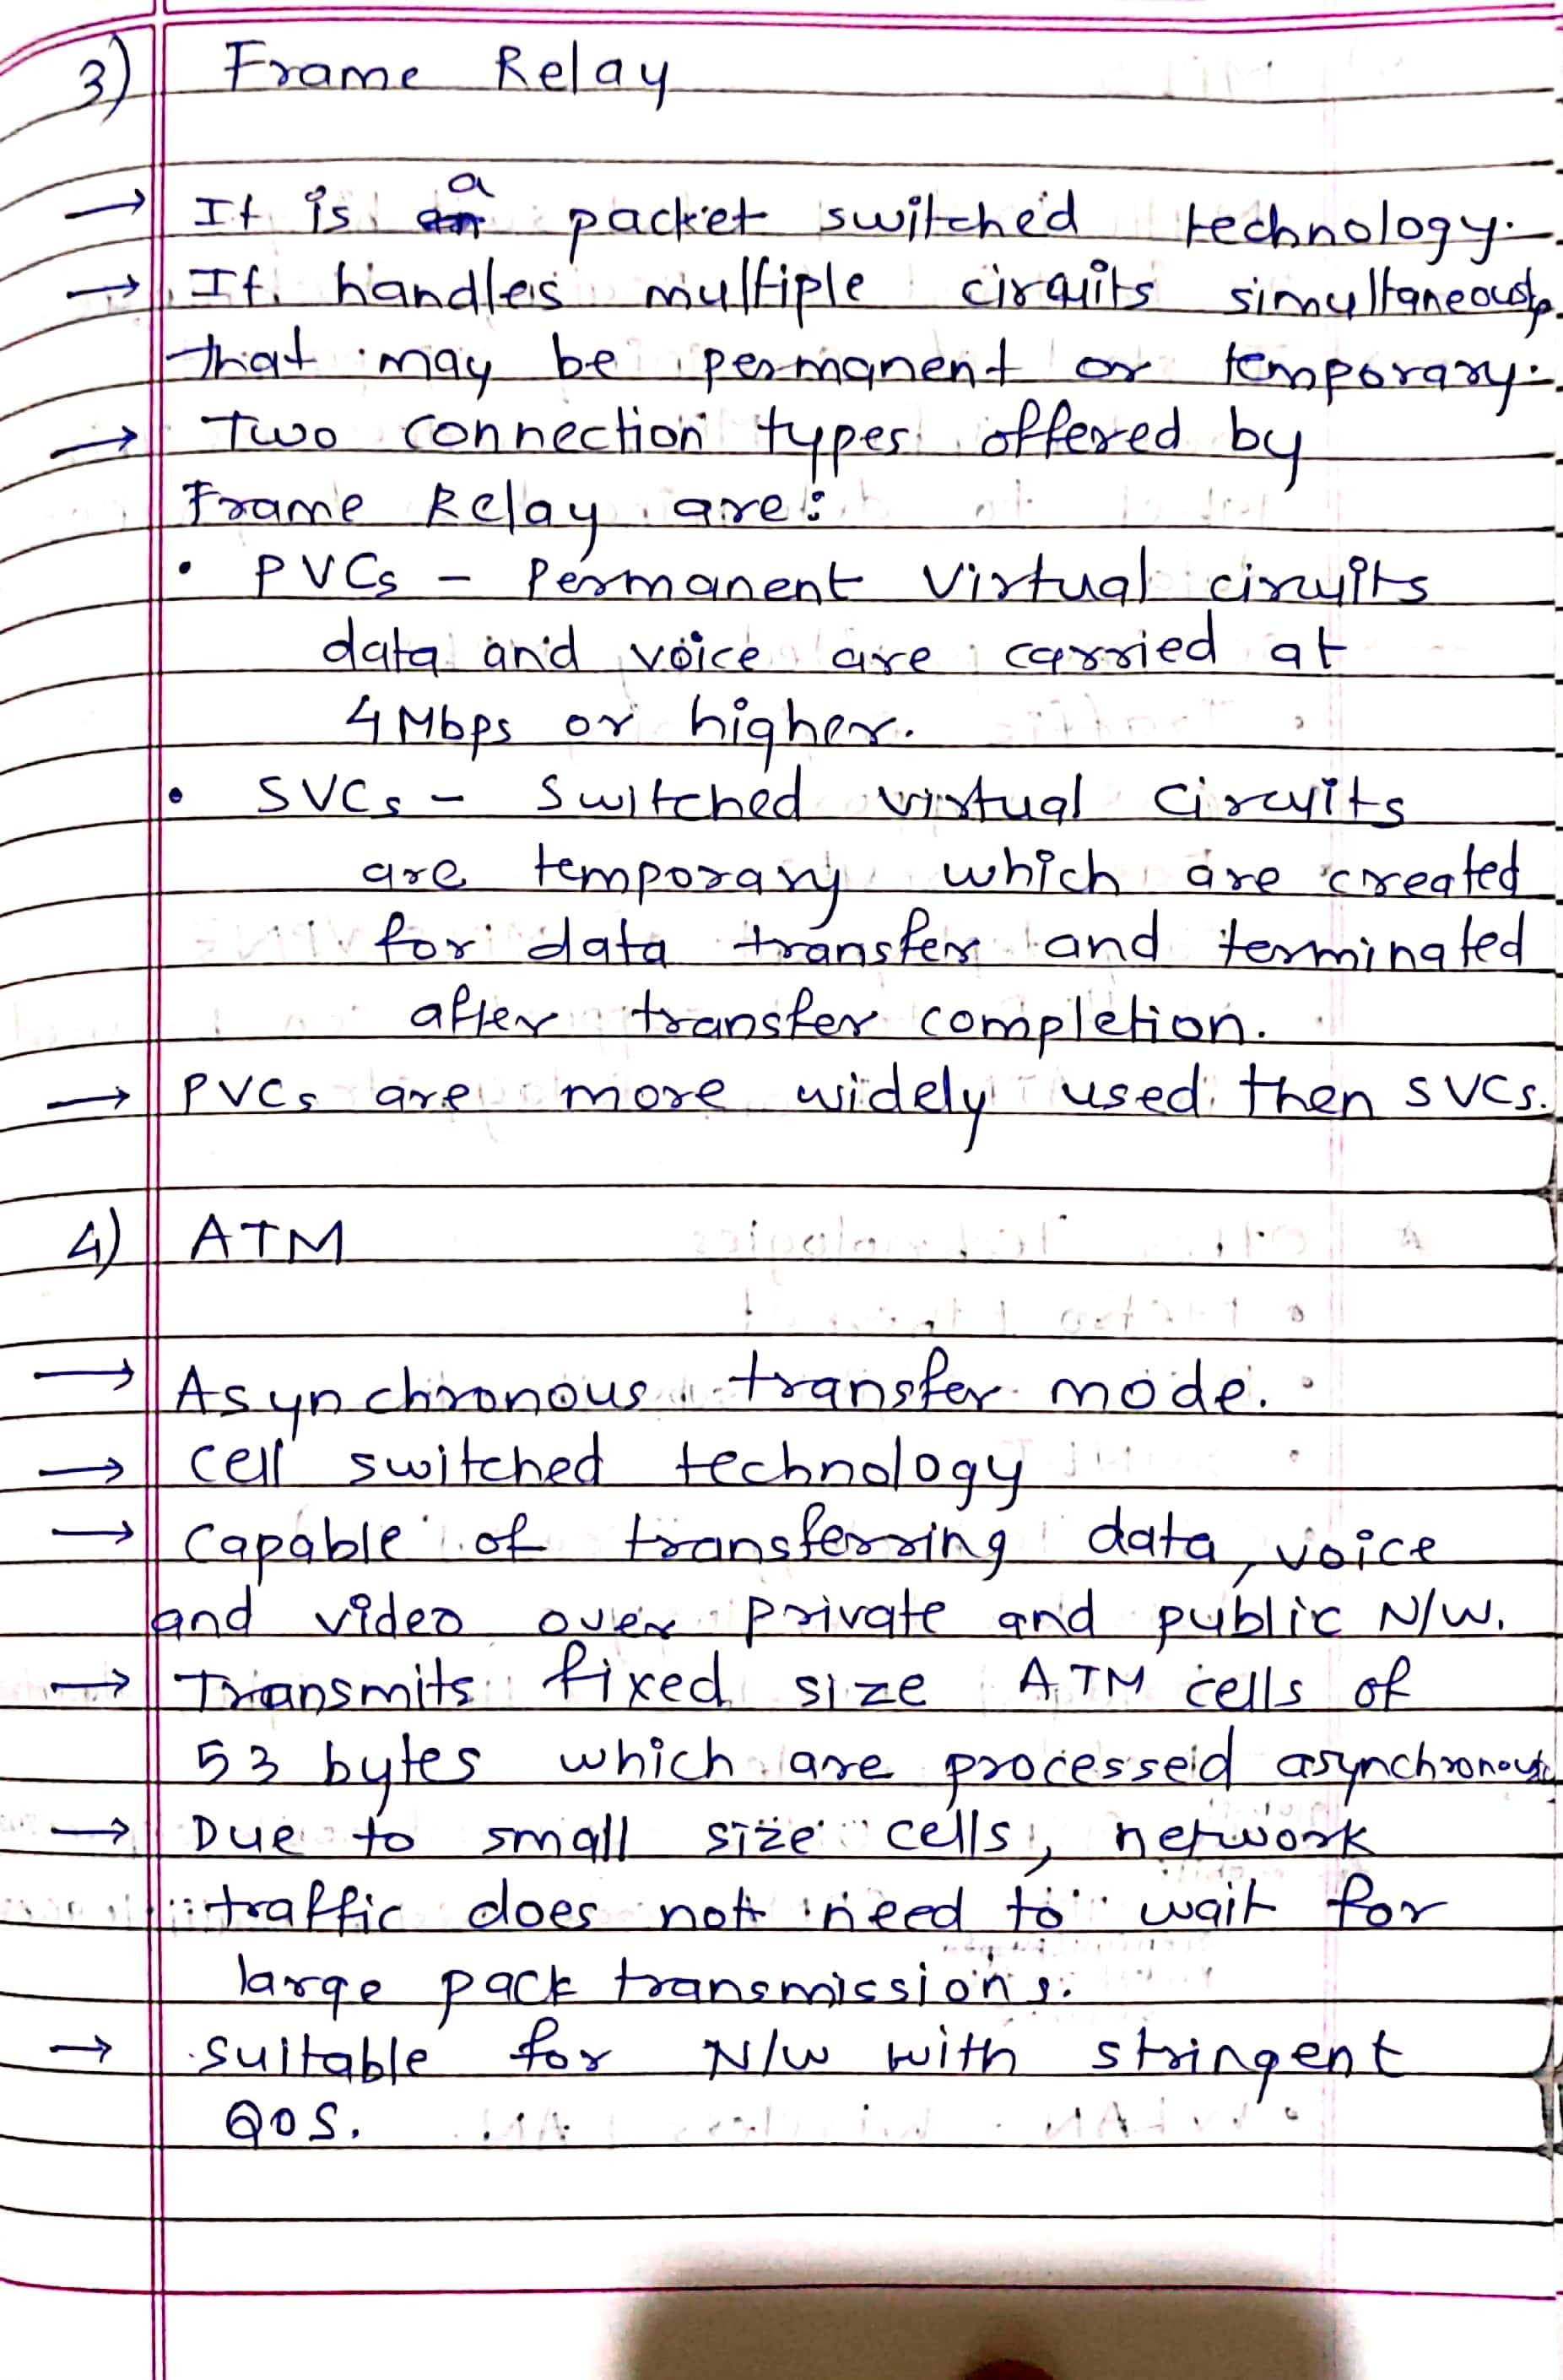 3) Frame Relay
→ It is a packet switched technology.
→ It handles multiple circuits simultaneously
that may be permanent or temporary.
→ Two connection types offered by
Frame Relay are:
• PVCs - Permanent Virtual circuits
data and voice are carried at
4 Mbps or higher.
• SVCs - Switched virtual circuits
are temporary which are created
for data transfer and terminated
after transfer completion.
→ PVCs are more widely used then SVCs.
4) ATM
→ Asynchronous transfer mode.
→ Cell switched technology
→ Capable of transferring data, voice
and video over private and public N/W.
→ Transmits fixed size ATM cells of
53 bytes which are processed asynchronously
→ Due to small size cells, network
traffic does not need to wait for
large pack transmissions.
→ Suitable for N/W with stringent
QOS.